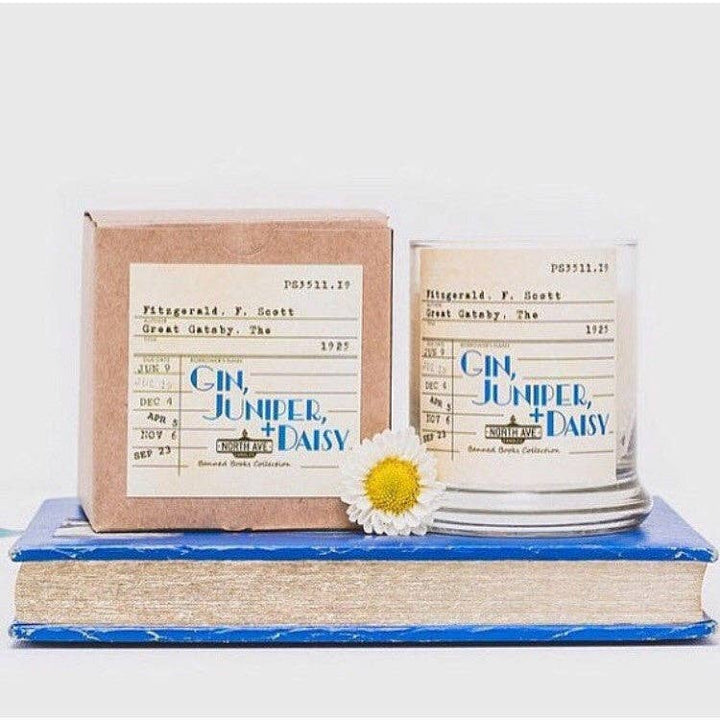 PS3511.I9
Fitzgerald, F. Scott
Great Gatsby, The
1925
JUN 9
DEC 4
APR 5
NOV 6
SEP 23
GIN,
JUNIPER,
+DAISY
NORTH AVE
Banned Books Collection
PS3511.I9
Fitzgerald, F. Scott
Great Gatsby, The
1925
JUN 9
DEC 4
APR 5
NOV 6
SEP 23
GIN,
JUNIPER,
+DAISY
NORTH AVE
Banned Books Collection